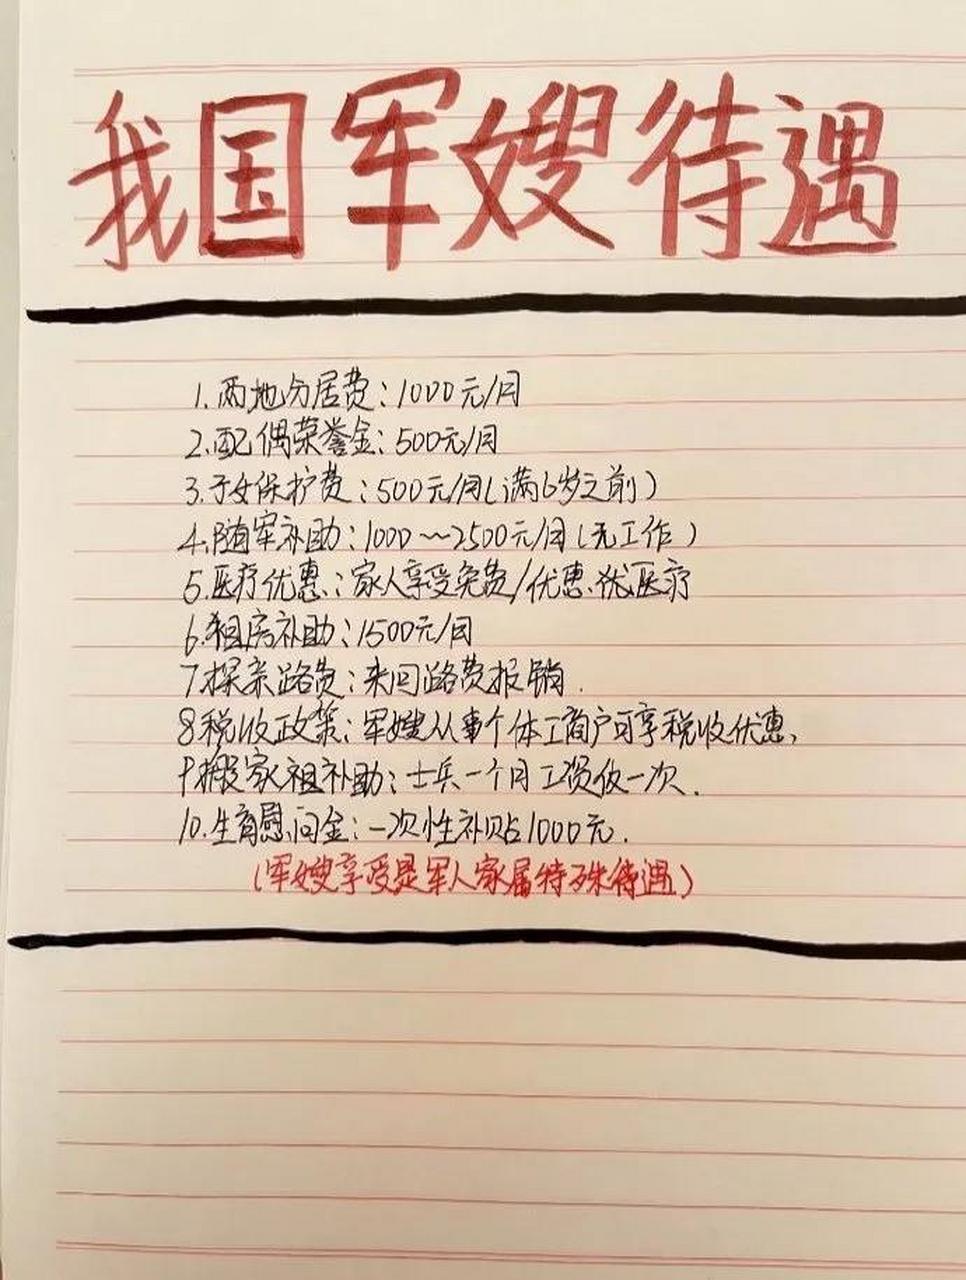 我国军嫂待遇
1.两地分居费:1000元/月
2.配偶荣誉金:500元/月
3.子女保护费:500元/月(满6岁之前)
4.随军补助:1000~2500元/月(无工作)
5.医疗优惠:家人享受免费/优惠.优医疗
6.租房补助:1500元/月
7探亲路费:来回路费报销.
8税收政策:军嫂从事个体工商户可享税收优惠、
9搬家祖补助:士兵一个月工资仅一次.
10.生育慰问金:一次性补贴1000元.
(军嫂享受是军人家属特殊待遇)